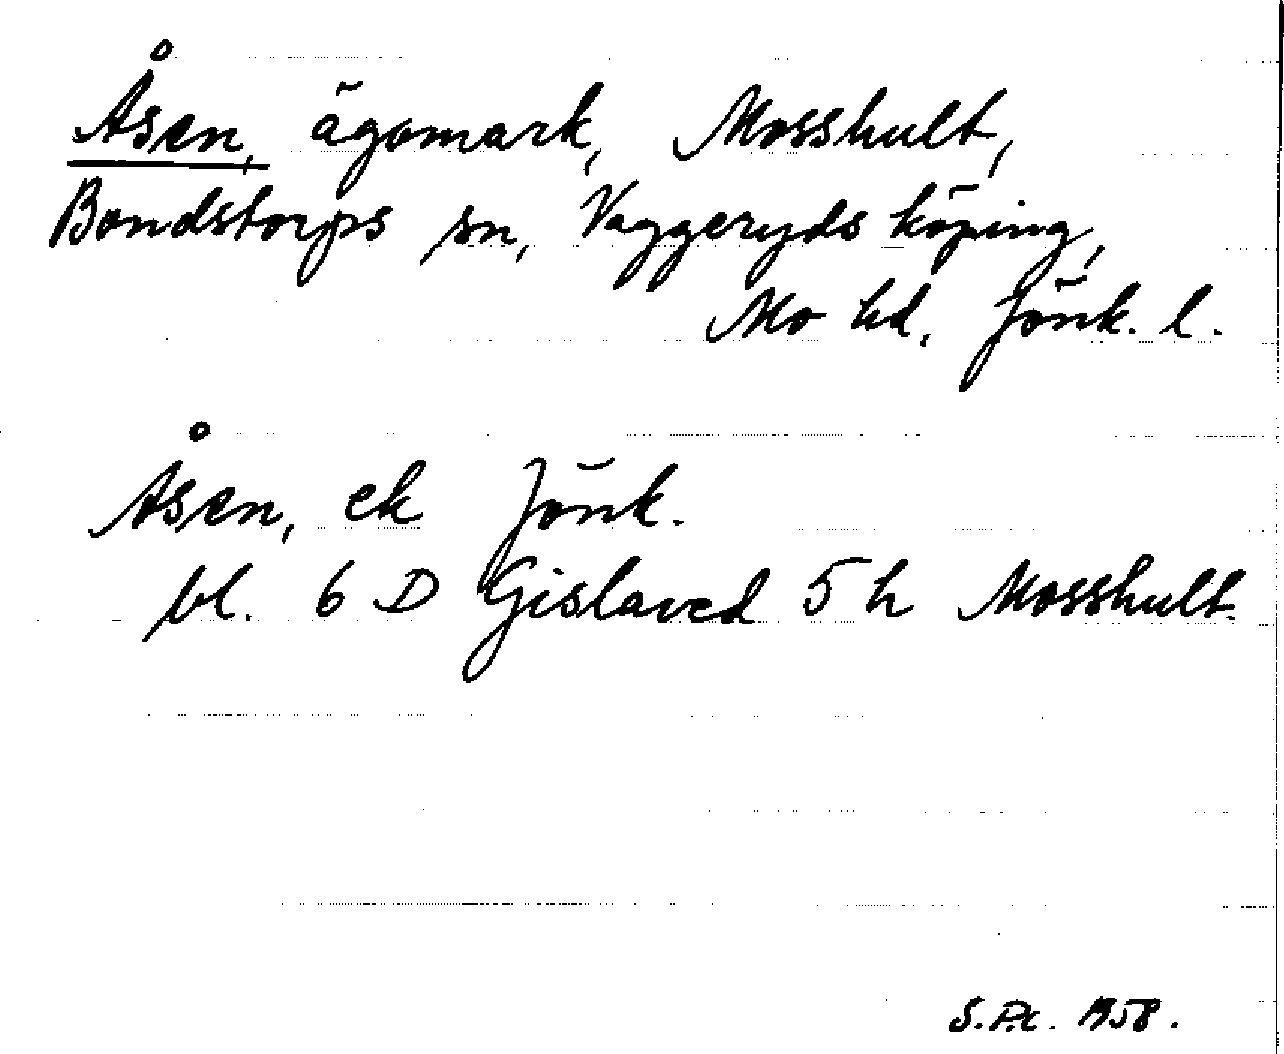 Åsen, ägomark, Mosshult,
Bondstorps sn, Vaggeryds köping,
Mo hd, Jönk. l.
Åsen, ek Jönk.
bl. 6 D Gislaved 5 h Mosshult.
1958.